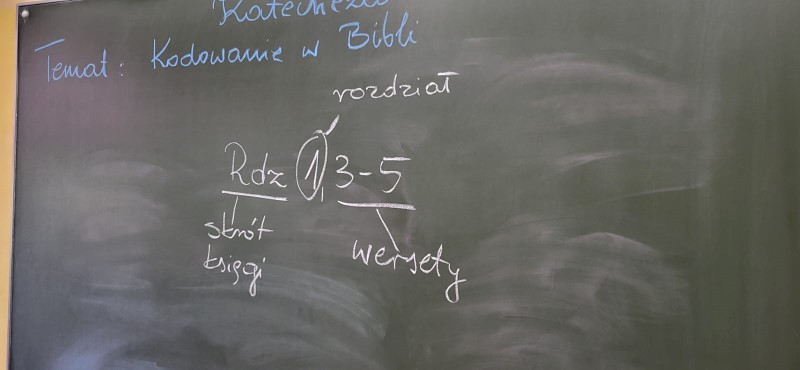 Katecheza
Temat: Kodowanie w Bibli
rozdział
Rdz 1, 3-5
skrót
księgi
wersety